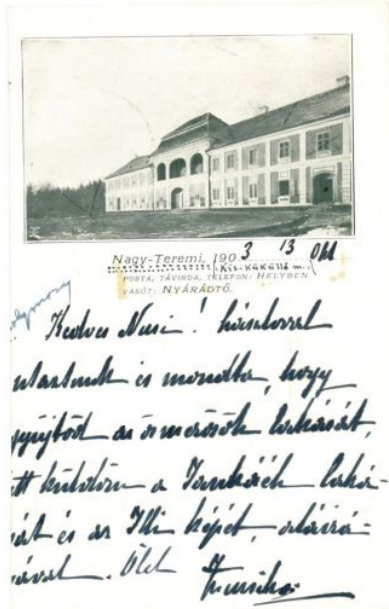 Nagy-Teremi, 1903 13 Okt
(Kis-Küküllő m.)
POSTA, TÁVIRDA, TELEFON: HELYBEN.
VASÚT: NYÁRÁDTŐ.
Kedves Nusi!
és mondta, hogy
gyűjtöd az ösmerősök lakását,
tt küldöm a laká-
sát és az Illi képét, aláírá-
sával. Ölel